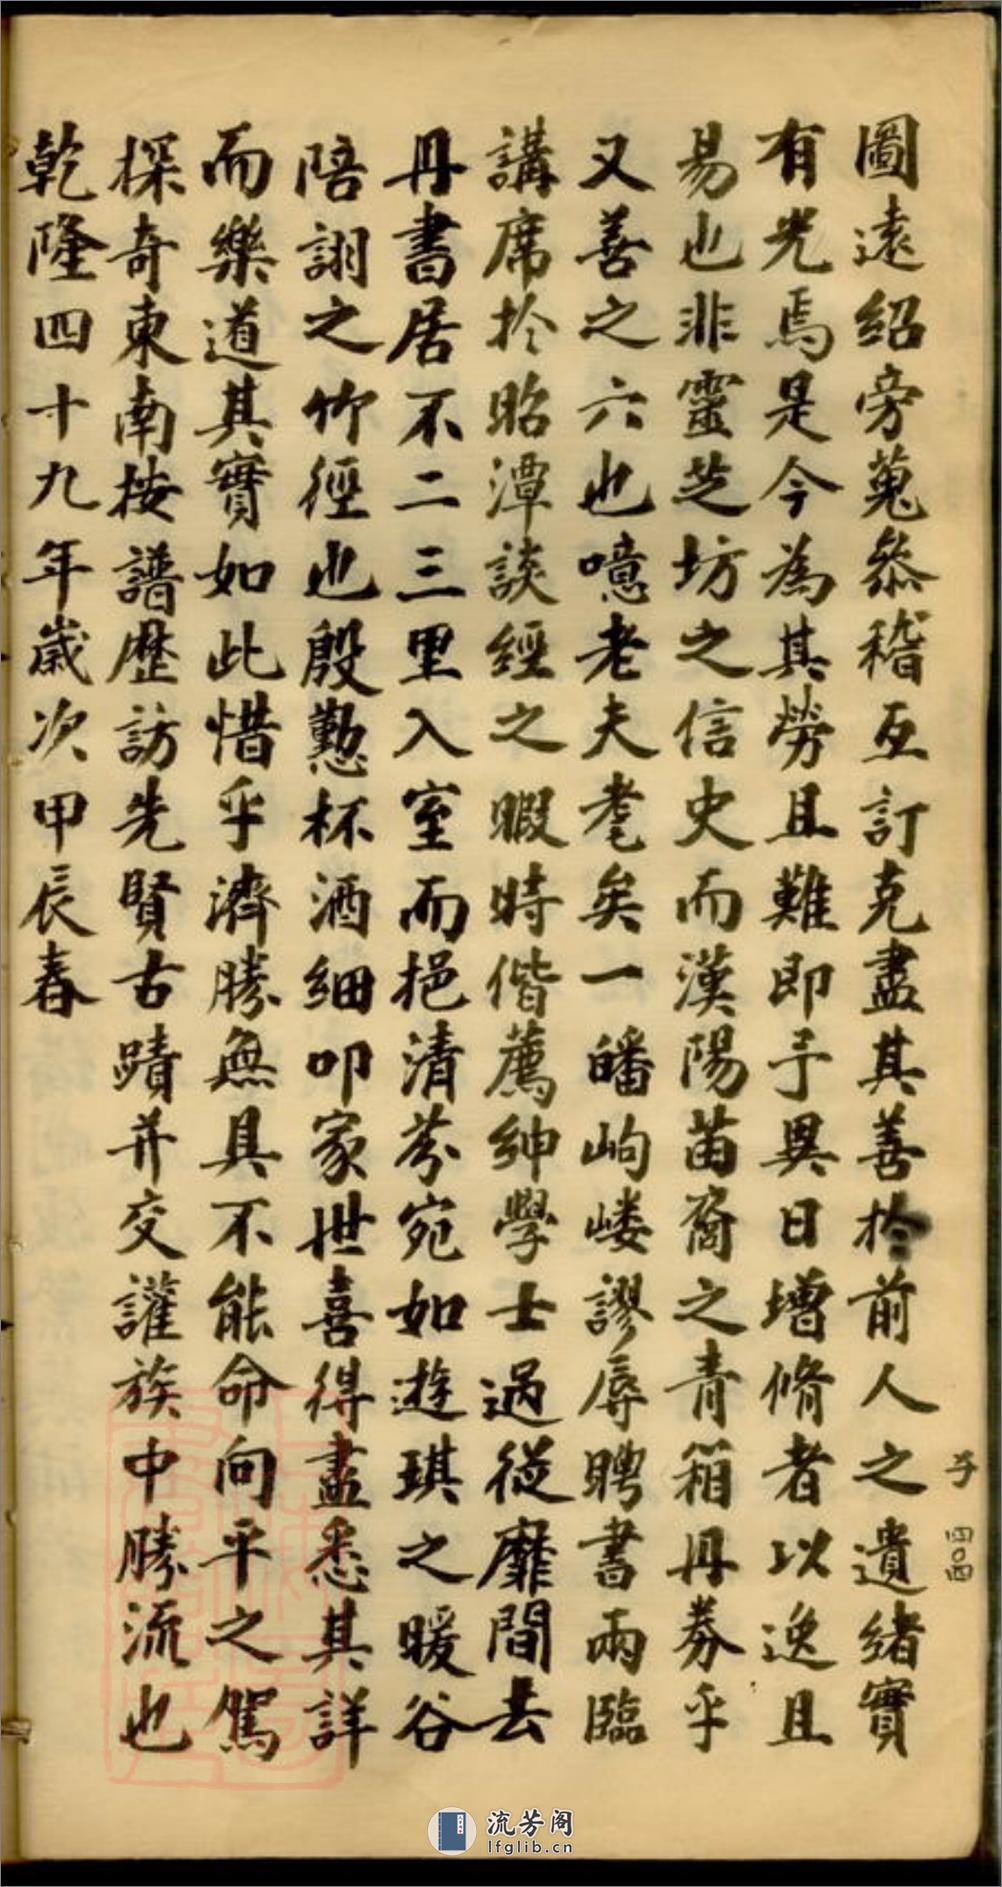 圖遠紹旁蒐叅稽互訂克盡其善於前人之遺緒實
有光焉是今為其勞且難即予異日增脩者以逸且
易也非靈芝坊之信史而漢陽苗裔之青箱丹券乎
又善之六也噫老夫耄矣一皤岣嶁謬辱聘書兩臨
講席於昭潭談經之暇時偕薦紳學士過從靡間去
丹書居不二三里入室而挹清芬宛如遊琪之暖谷
陪詡之竹徑也殷懃杯酒細叩家世喜得盡悉其詳
而樂道其實如此惜乎濟勝無具不能命向平之駕
探奇東南按譜歷訪先賢古蹟并交讙族中勝流也
乾隆四十九年歲次甲辰春
子 四〇四
流芳阁
lfglib.cn